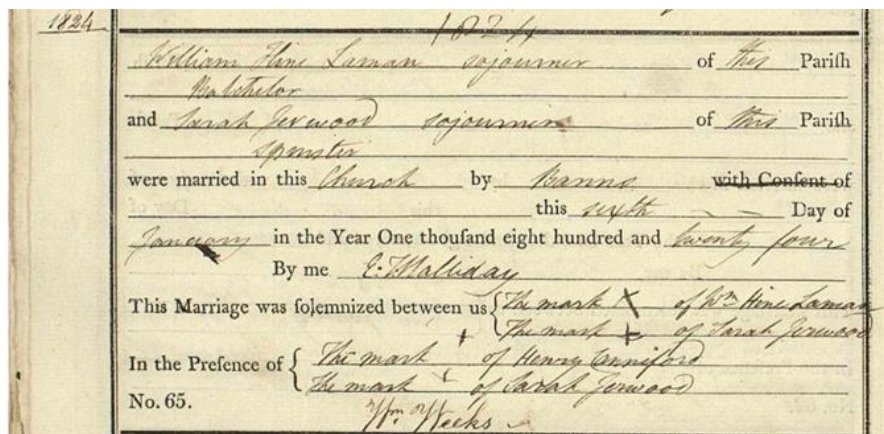 1824
1824
William Hine Laman sojourner of this Parish
Batchelor
and Sarah Gerwood sojourner of this Parish
Spinster
were married in this Church by Banns with Consent of
this sixth Day of
January in the Year One thousand eight hundred and twenty four
By me E: Malliday
This Marriage was solemnized between us { The mark X of Wm Hine Laman
The mark + of Sarah Gerwood
In the Presence of { The mark + of Henry Anniford
The mark + of Sarah Gerwood
No. 65.
Wm Weeks